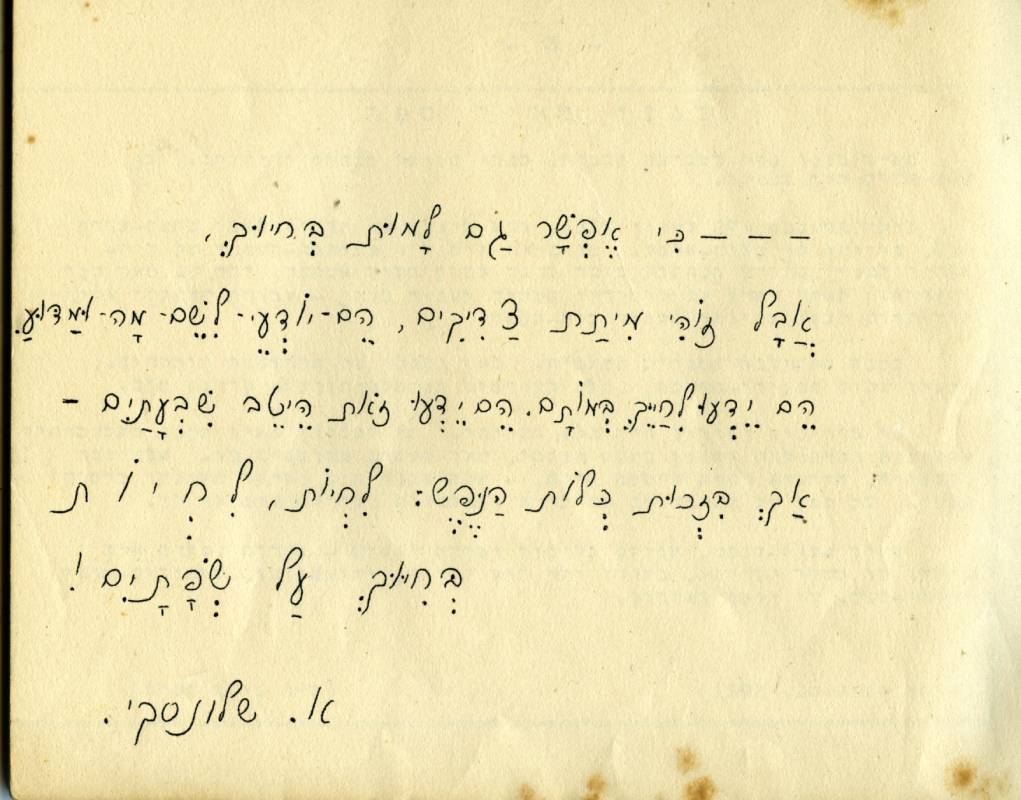 — — כִּי אֶפְשָׁר גַּם לָמוּת בְּחִיּוּךְ,
אֲבָל זוֹהִי מִיתַת צַדִּיקִים, הֵם-יוֹדְעֵי-לְשֵׁם-מָה-וּמַדּוּעַ.
הֵם יֵדְעוּ לְחַיֵּךְ בְּמוֹתָם. הֵם יֵדְעוּ זֹאת הֵיטֵב שִׁבְעָתַיִם –
אַךְ בִּזְכוּת כְּלוֹת הַנֶּפֶשׁ: לִחְיוֹת, לִ חְ י וֹ ת
בְּחִיּוּךְ עַל שְׂפָתַיִם!
א. שלונסקי.